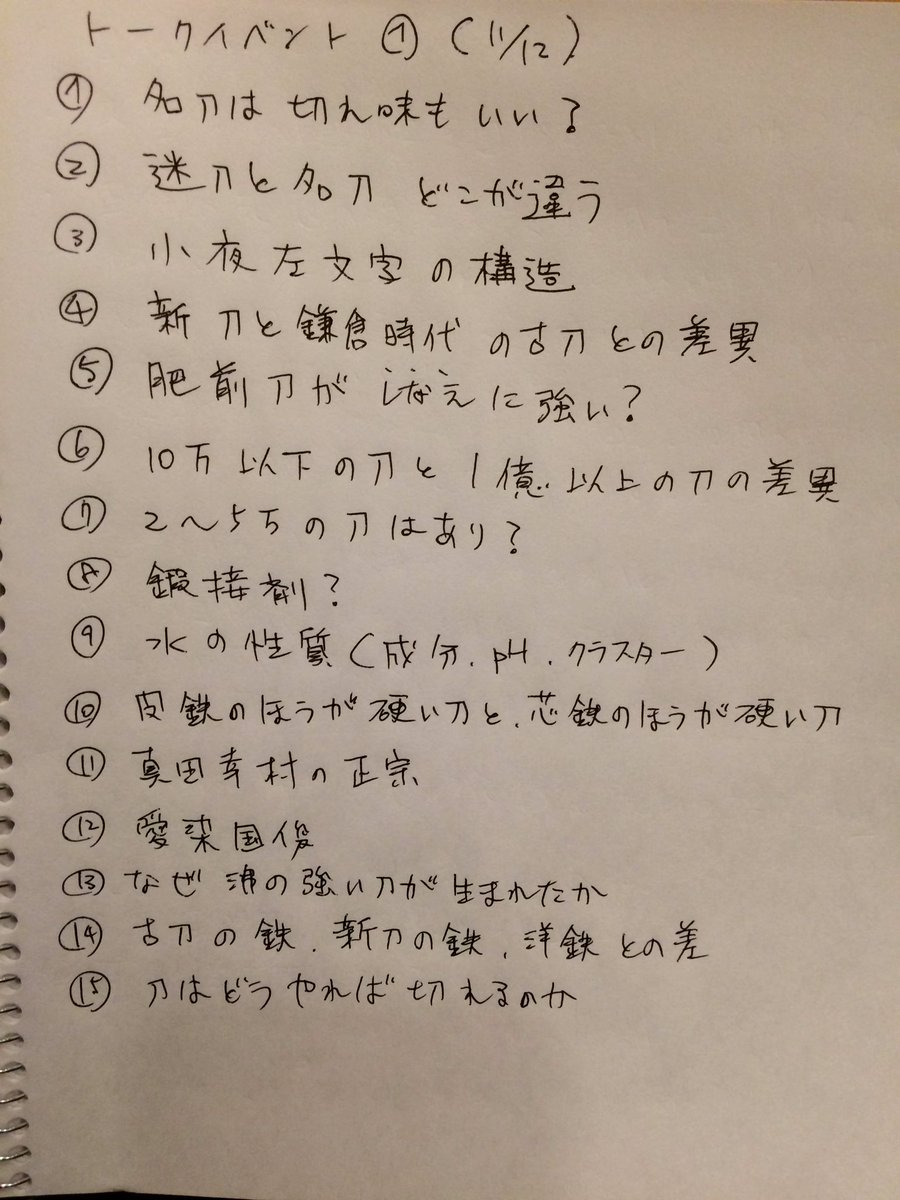 トークイベント ① (11/12)
① 名刀は 切れ味も いい?
② 迷刀と名刀 どこが違う
③ 小夜左文字の構造
④ 新刀と鎌倉時代の古刀との差異
⑤ 肥前刀が しなえに強い?
⑥ 10万以下の刀と1億以上の刀の差異
⑦ 2〜5万の刀はあり?
⑧ 鍛接剤?
⑨ 水の性質(成分、pH、クラスター)
⑩ 皮鉄のほうが硬い刀と、芯鉄のほうが硬い刀
⑪ 真田幸村の正宗
⑫ 愛染国俊
⑬ なぜ沸の強い刀が生まれたか
⑭ 古刀の鉄、新刀の鉄、洋鉄との差
⑮ 刀はどうやれば切れるのか